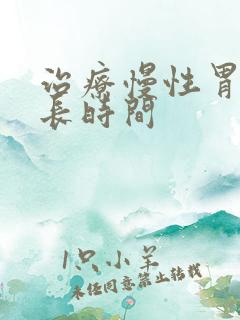 治療慢性胃
長時間
1只小羊
未经同意禁止转载